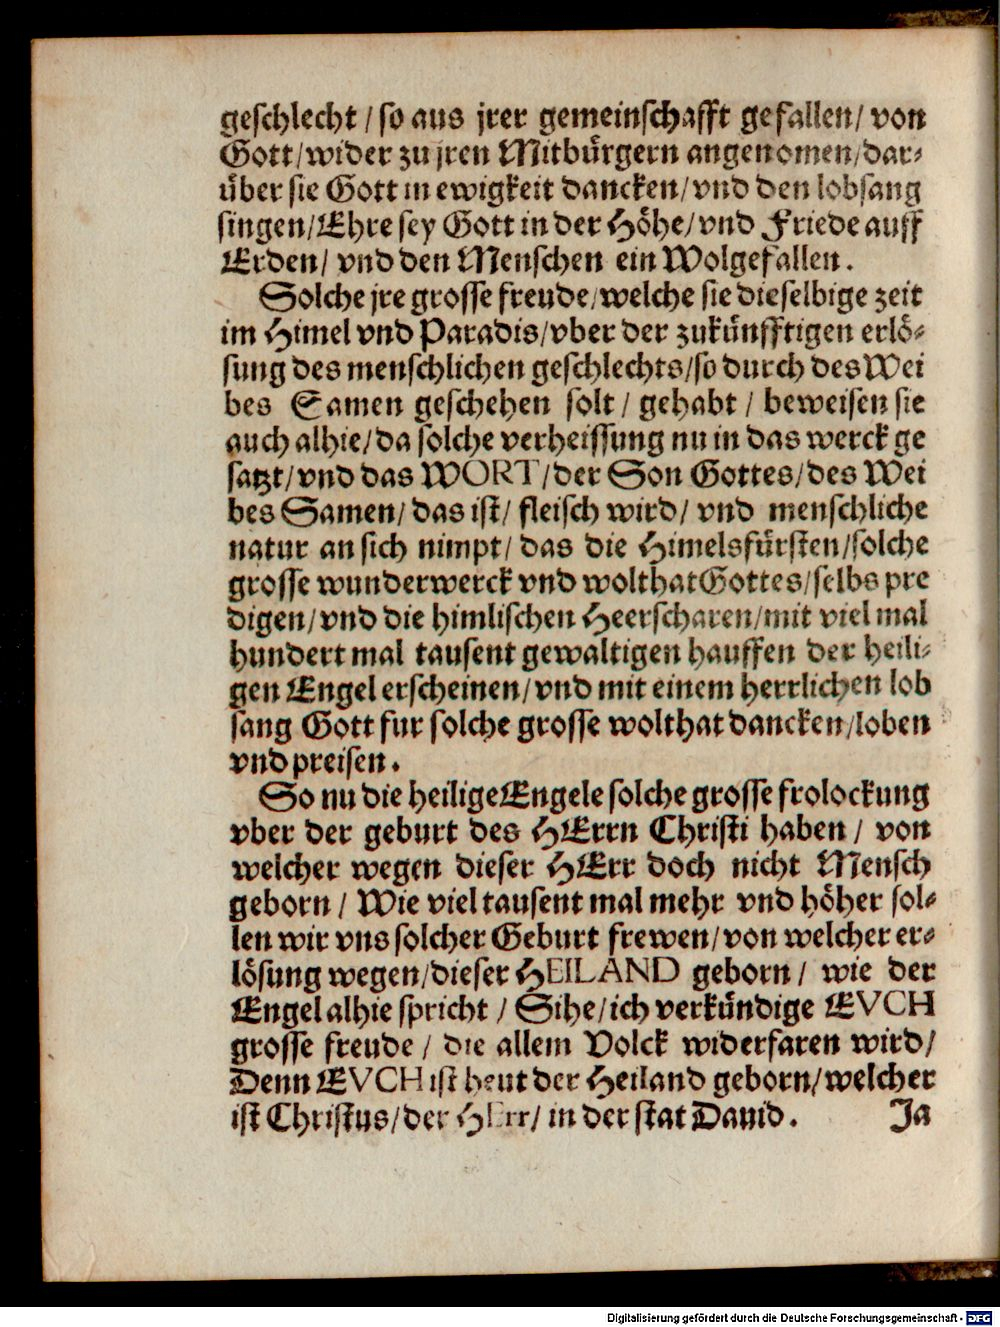 geschlecht / so aus jrer gemeinschafft gefallen / von
Gott / wider zu jren Mitbürgern angenomen / dar-
über sie Gott in ewigkeit dancken / vnd den lobsang
singen / Ehre sey Gott in der Höhe / vnd Friede auff
Erden / vnd den Menschen ein Wolgefallen.
Solche jre grosse freude / welche sie dieselbige zeit
im Himel vnd Paradis / vber der zukünfftigen erlö-
sung des menschlichen geschlechts / so durch des Wei
bes Samen geschehen solt / gehabt / beweisen sie
auch alhie / da solche verheissung nu in das werck ge
satzt / vnd das WORT / der Son Gottes / des Wei
bes Samen / das ist / fleisch wird / vnd menschliche
natur an sich nimpt / das die Himelsfürsten / solche
grosse wunderwerck vnd wolthat Gottes / selbs pre
digen / vnd die himlischen Heerscharen / mit viel mal
hundert mal tausent gewaltigen hauffen der heili-
gen Engel erscheinen / vnd mit einem herrlichen lob
sang Gott fur solche grosse wolthat dancken / loben
vnd preisen.
So nu die heilige Engele solche grosse frolockung
vber der geburt des HErrn Christi haben / von
welcher wegen dieser HErr doch nicht Mensch
geborn / Wie viel tausent mal mehr vnd höher sol-
len wir vns solcher Geburt frewen / von welcher er-
lösung wegen / dieser HEILAND geborn / wie der
Engel alhie spricht / Sihe / ich verkündige EVCH
grosse freude / die allem Volck widerfaren wird /
Denn EVCH ist heut der Heiland geborn / welcher
ist Christus / der HErr / in der stat Dauid. Ja
Digitalisierung gefördert durch die Deutsche Forschungsgemeinschaft - DFG